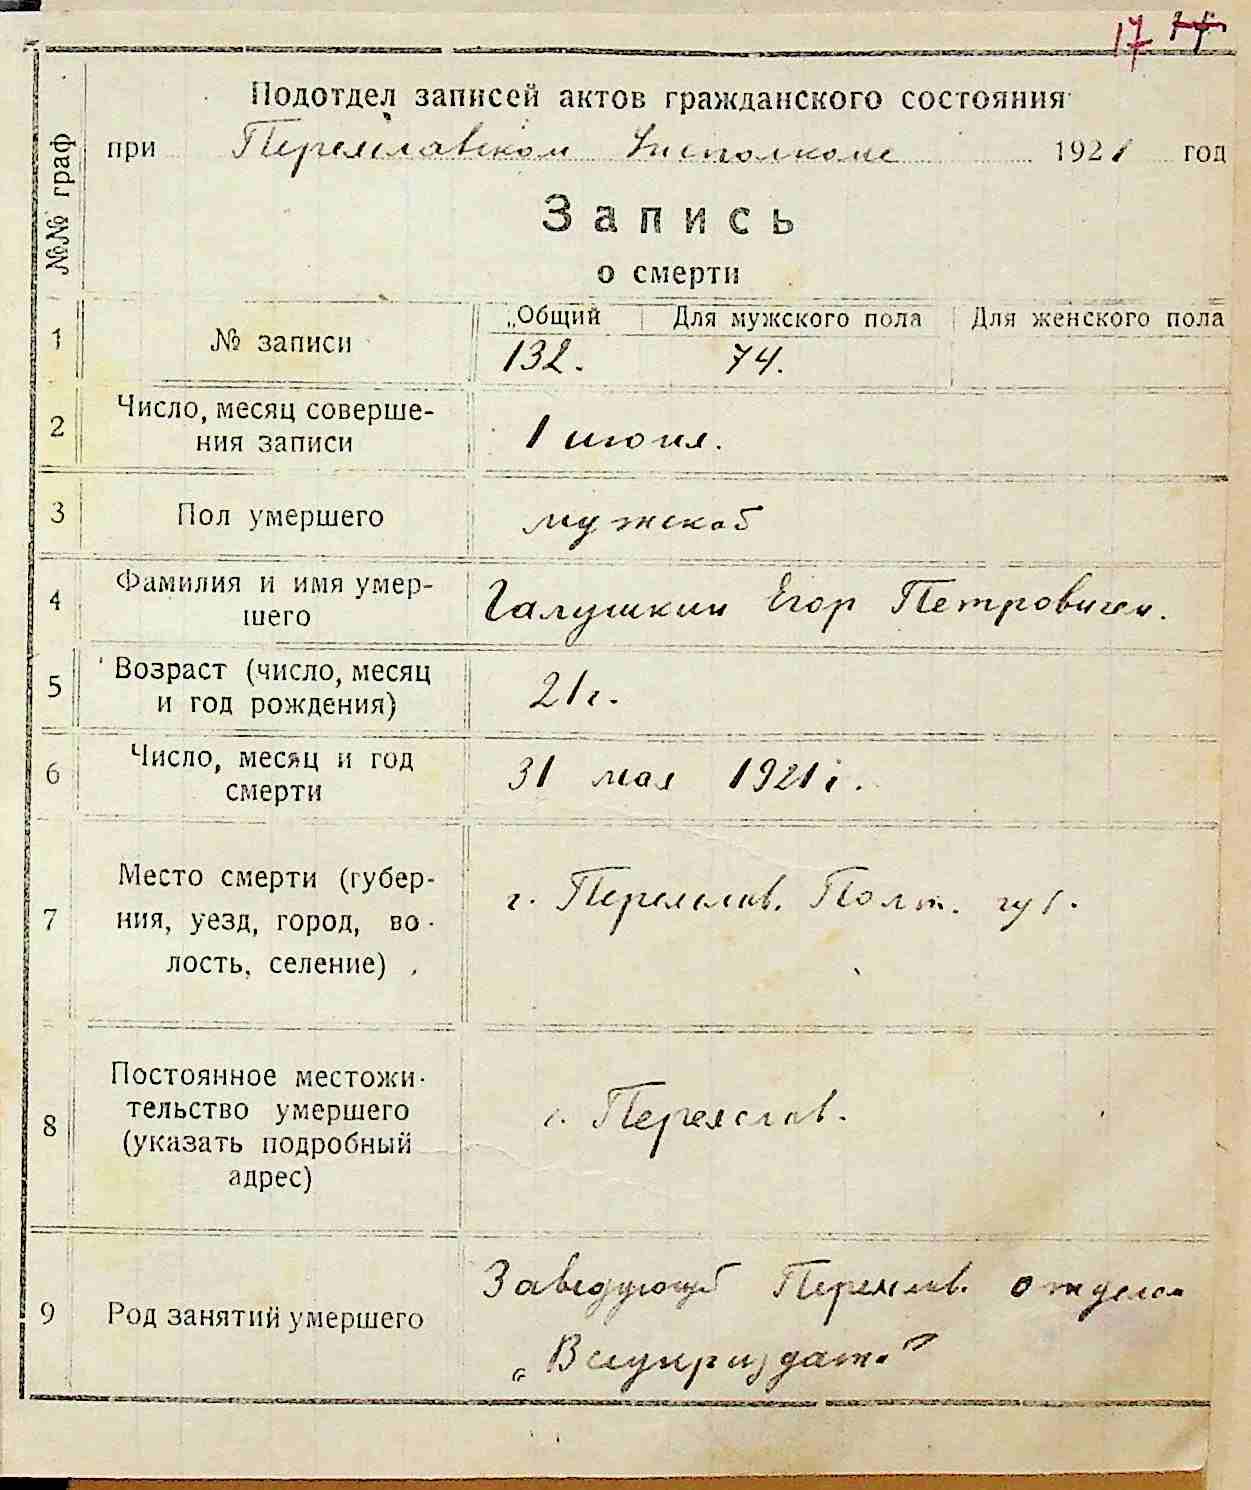 17
Подотдел записей актов гражданского состояния
при Переяславском Исполкоме 1921 год
№№ граф
Запись
о смерти
1 № записи „Общий Для мужского пола Для женского пола
132. 74.
2 Число, месяц соверше-
ния записи 1 июня.
3 Пол умершего мужской
4 Фамилия и имя умер-
шего Галушкин Егор Петрович
5 Возраст (число, месяц
и год рождения) 21 г.
6 Число, месяц и год
смерти 31 мая 1921 г.
7 Место смерти (губер-
ния, уезд, город, во-
лость, селение) г. Переяслав. Полт. губ.
8 Постоянное местожи-
тельство умершего
(указать подробный
адрес) г. Переяслав.
9 Род занятий умершего Заведующий Переяслав. отделом
„Всеукриздат."